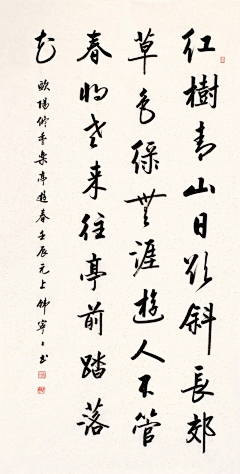 红樹青山日欲斜長郊
草色綠無涯遊人不管
春将老来往亭前踏落
花
歐陽修丰樂亭遊春壬辰元上韩寧〻书